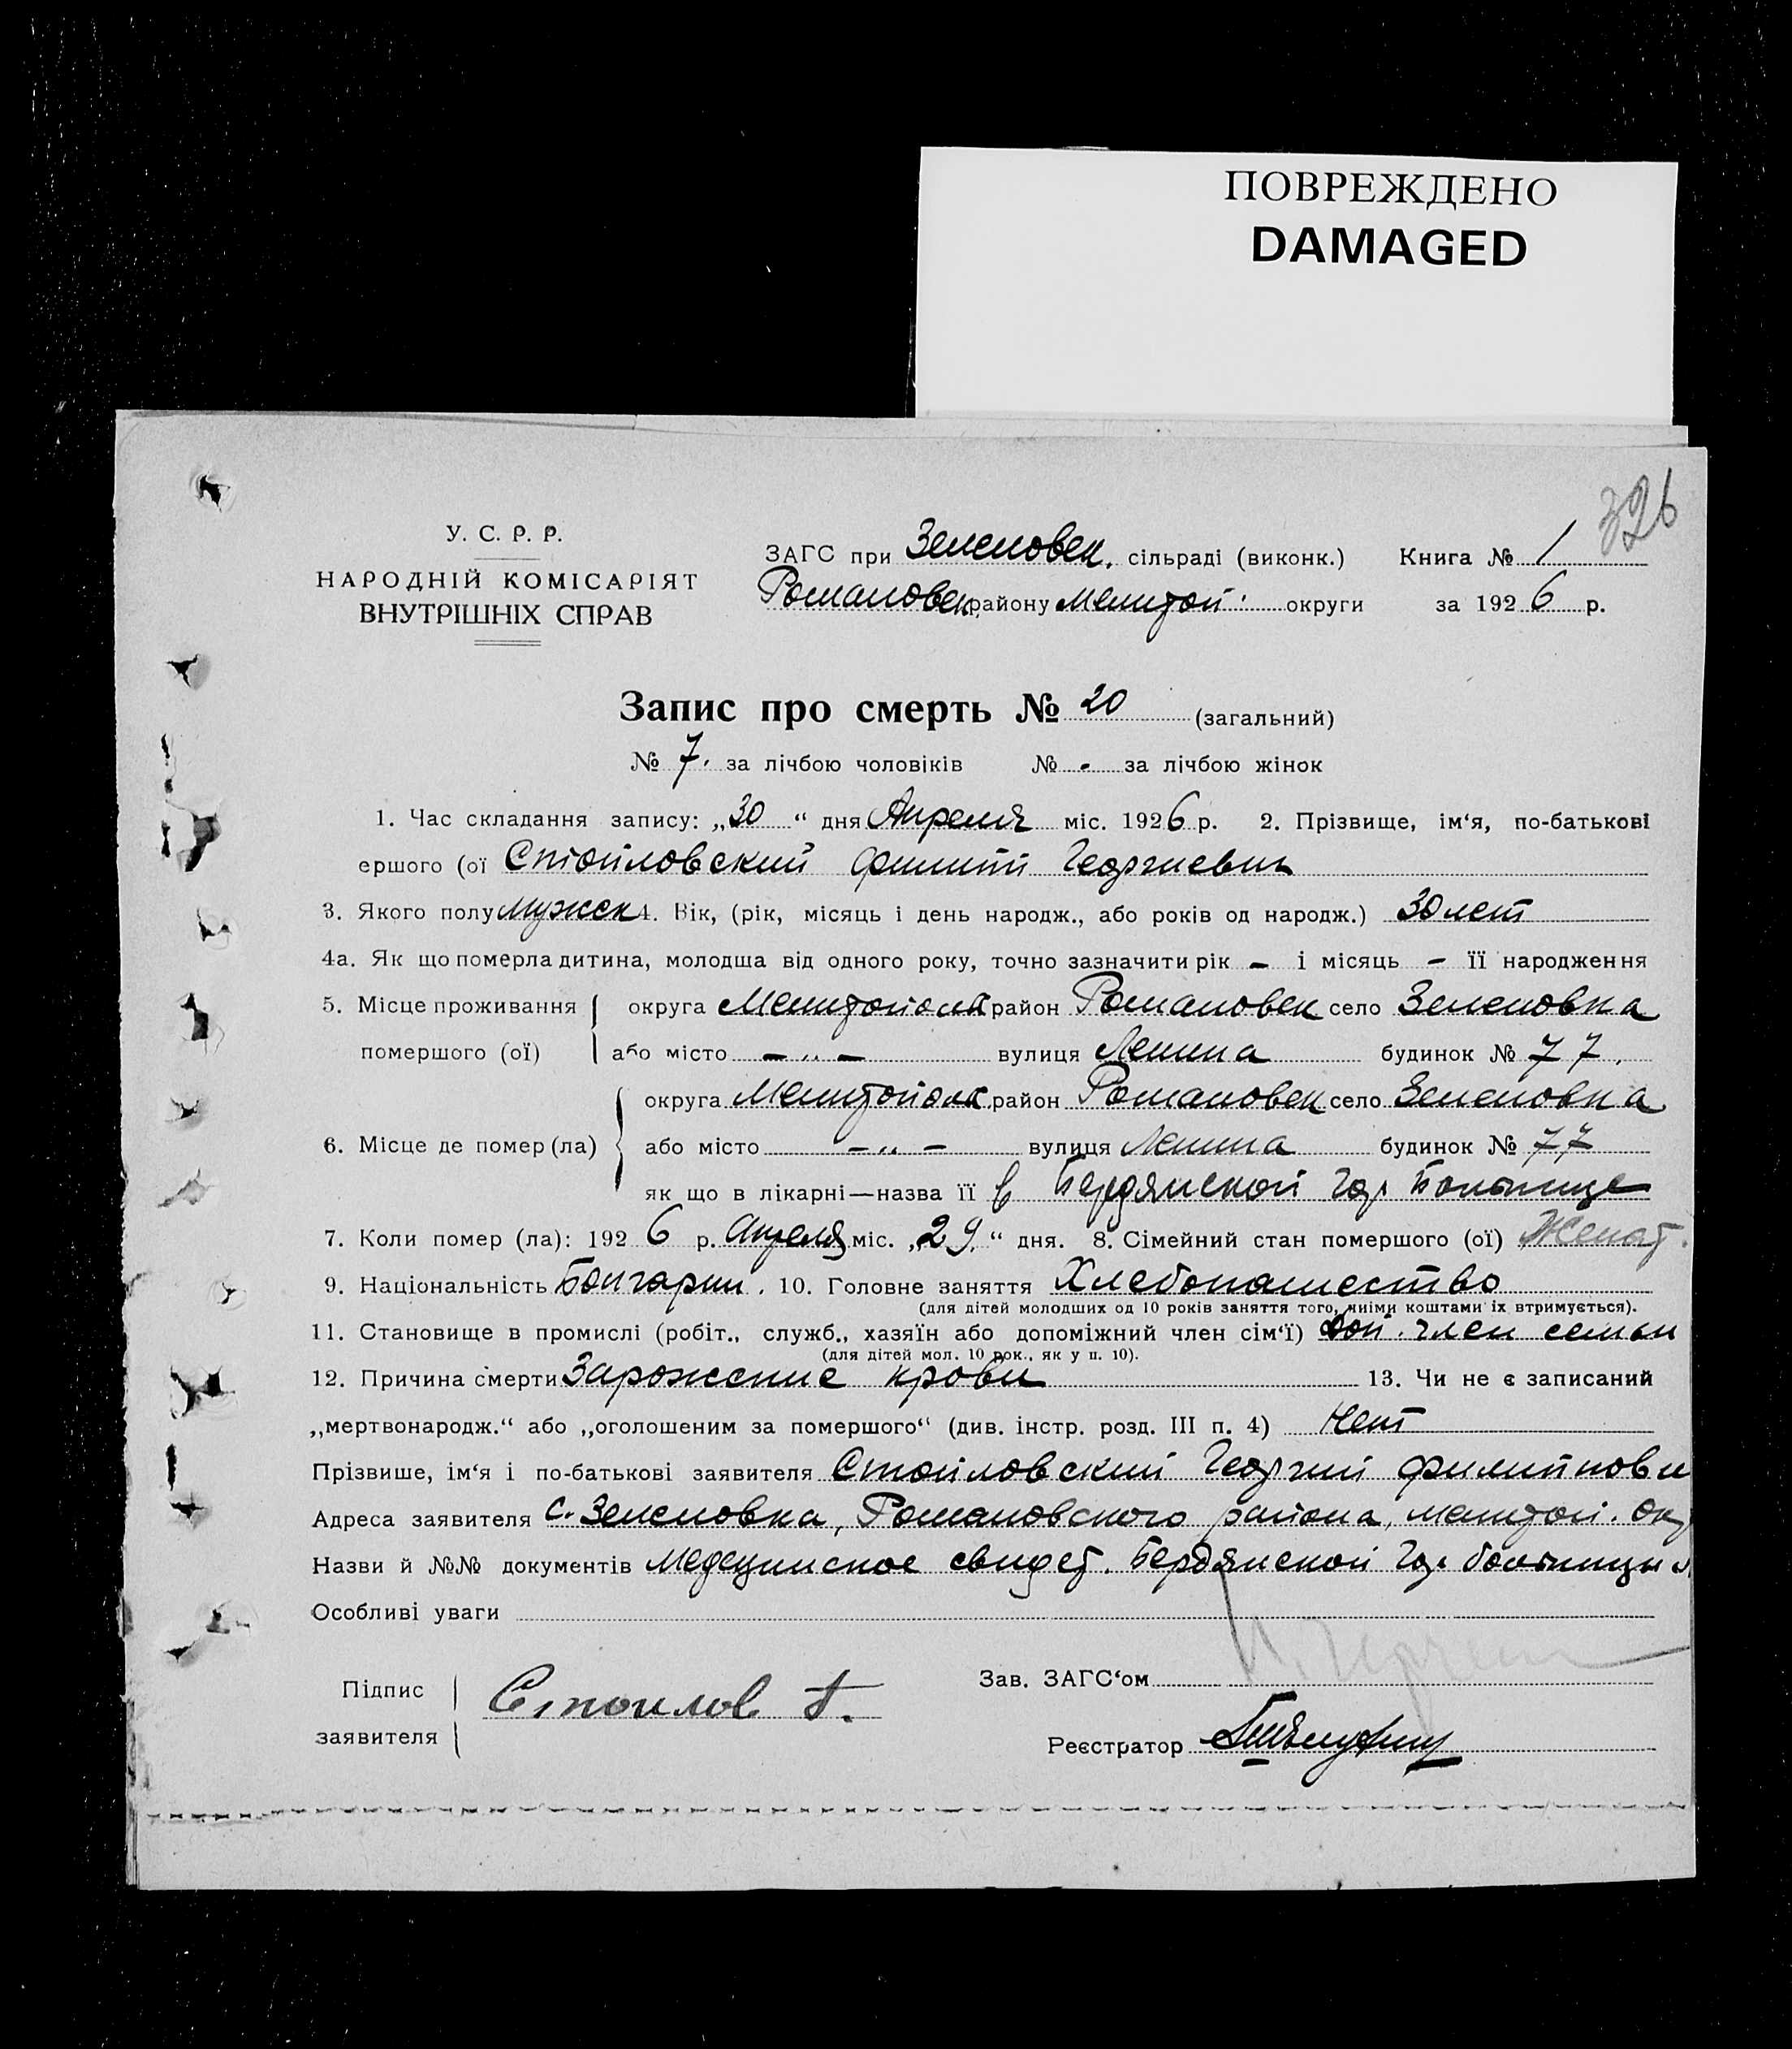 ПОВРЕЖДЕНО
DAMAGED
326
У. С. Р. Р.
НАРОДНІЙ КОМІСАРІЯТ
ВНУТРІШНІХ СПРАВ
ЗАГС при Зеленовск. сільраді (виконк.) Книга № 1
Романовск. району Мелитоп. округи за 1926 р.
Запис про смерть № 20 (загальний)
№ 7. за лічбою чоловіків № - за лічбою жінок
1. Час складання запису: „30“ дня Апреля міс. 1926 р. 2. Прізвище, ім‘я, по-батькові
ершого (ої Стоиловский Филипп Георгиевич
3. Якого полу Мужск 4. Вік, (рік, місяць і день народж., або років од народж.) 30 лет
4а. Як що померла дитина, молодша від одного року, точно зазначити рік – і місяць – її народження
5. Місце проживання округа Мелитопольск район Романовск село Зеленовка
помершого (ої) або місто – „ – вулиця Ленина будинок № 77.
округа Мелитопольск район Романовск село Зеленовка
6. Місце де помер (ла) або місто – „ – вулиця Ленина будинок № 77
як що в лікарні—назва її в Бердянской гор Больнице
7. Коли помер (ла): 1926 р. Апреля міс. „29“ дня. 8. Сімейний стан помершого (ої) Женат.
9. Національність Болгарин. 10. Головне заняття Хлебопашество
(для дітей молодших од 10 років заняття того, чиіми коштами їх втримується).
11. Становище в промислі (робіт., служб., хазяїн або допоміжний член сім‘ї) доп. член семьи
(для дітей мол. 10 рок., як у п. 10).
12. Причина смерти Зарожение крови 13. Чи не є записаний
„мертвонародж.“ або „оголошеним за помершого“ (див. інстр. розд. III п. 4) Нет
Прізвише, ім‘я і по-батькові заявителя Стоиловский Георгий Филиппови
Адреса заявителя с. Зеленовка, Романовского района, Мелитоп. Ок
Назви й №№ документів Медецинское свидет. Бердянской гор больницы
Особливі уваги
Підпис
заявителя
Стоилов Г.
Зав. ЗАГС‘ом
Реєстратор